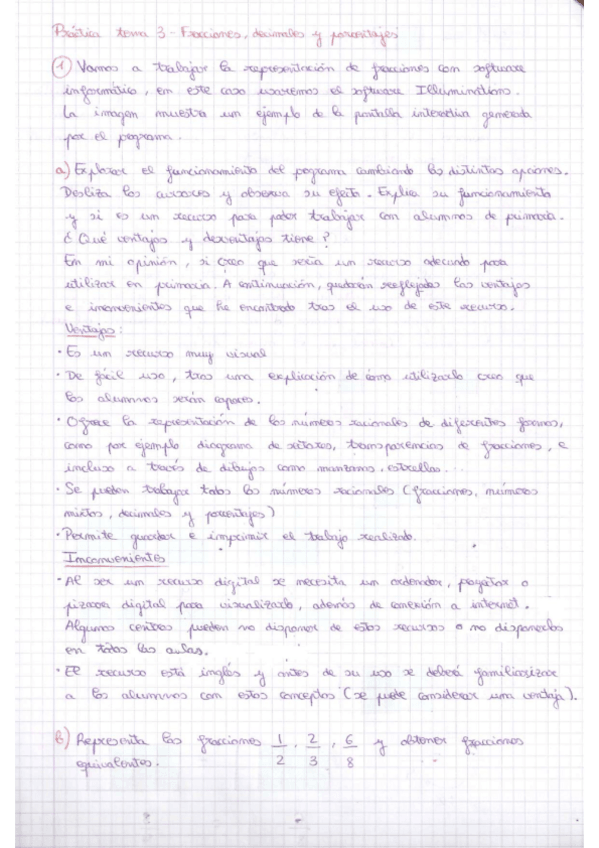 Práctica tema 3 - Fracciones, decimales y porcentajes
1 Vamos a trabajar la representación de fracciones con software
informático, en este caso usaremos el software Illuminations.
La imagen muestra un ejemplo de la pantalla interactiva generada
por el programa.
a) Explorar el funcionamiento del programa cambiando las distintas opciones.
Desliza los cursores y observa su efecto. Explica su funcionamiento
y si es un recurso para poder trabajar con alumnos de primaria.
¿Qué ventajas y desventajas tiene?
En mi opinión, si creo que sería un recurso adecuado para
utilizar en primaria. A continuación, quedarán reflejadas las ventajas
e inconvenientes que he encontrado tras el uso de este recurso.
Ventajas:
· Es un recurso muy visual
· De fácil uso, tras una explicación de cómo utilizarlo creo que
los alumnos serán capaces.
· Ofrece la representación de los números racionales de diferentes formas,
como por ejemplo diagrama de sectores, transparencias de fracciones, e
incluso a través de dibujos como manzanas, estrellas...
· Se pueden trabajar todos los números racionales (fracciones, números
mixtos, decimales y porcentajes)
· Permite guardar e imprimir el trabajo realizado.
Inconvenientes
· Al ser un recurso digital se necesita un ordenador, portátil o
pizarra digital para visualizarlo, además de conexión a internet.
Algunos centros pueden no disponer de estos recursos o no disponerlos
en todas las aulas.
· El recurso está inglés y antes de su uso se deberá familiarizar
a los alumnos con estos conceptos (se puede considerar una ventaja).
b) Representa las fracciones 1/2, 2/3, 6/8 y obtener fracciones
equivalentes.